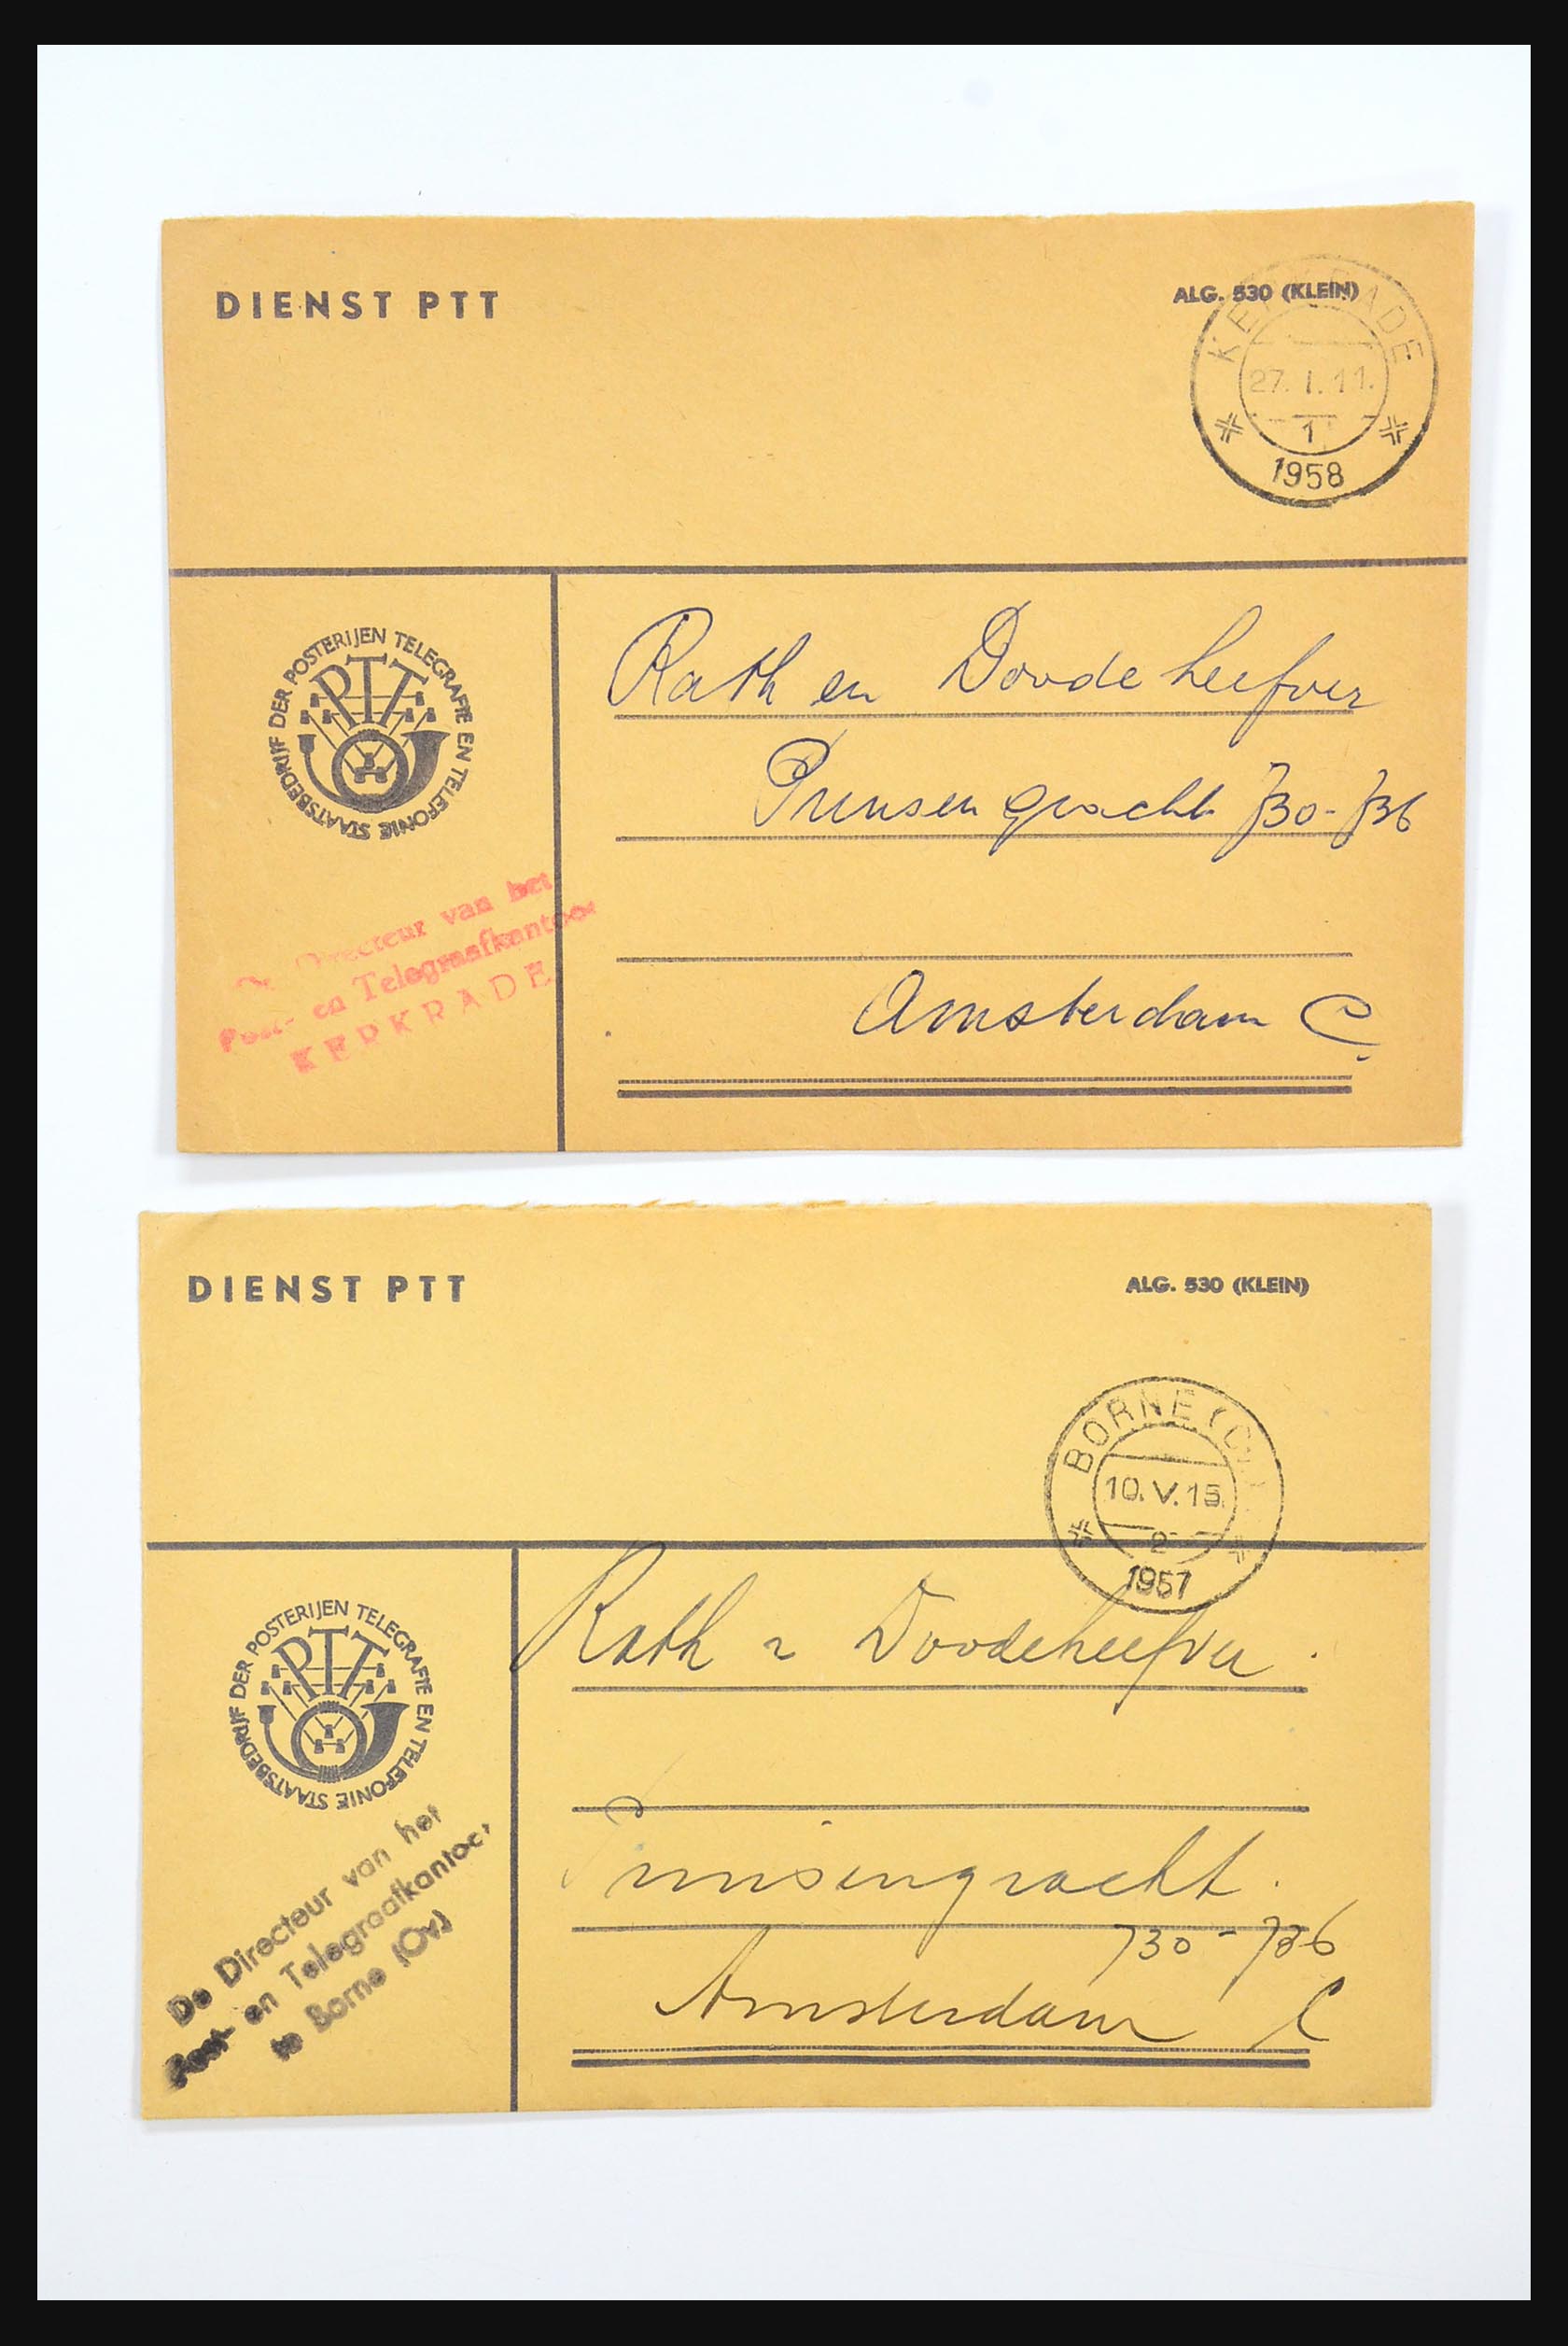 DIENST PTT
ALG. 530 (KLEIN)
KERKRADE
27.I.11.
1
1958
STAATSBEDRIJF DER POSTERIJEN TELEGRAFIE EN TELEFONIE
PTT
Rath en Doodeheefver
Prinsengracht 730-736
Amsterdam C.
De Directeur van het
Post- en Telegraafkantoor
KERKRADE
DIENST PTT
ALG. 530 (KLEIN)
BORNE (O
10.V.15.
2
1957
STAATSBEDRIJF DER POSTERIJEN TELEGRAFIE EN TELEFONIE
PTT
Rath n Doodeheefver.
Prinsengracht.
730-736
Amsterdam C
De Directeur van het
Post- en Telegraafkantoor
te Borne (Ov)